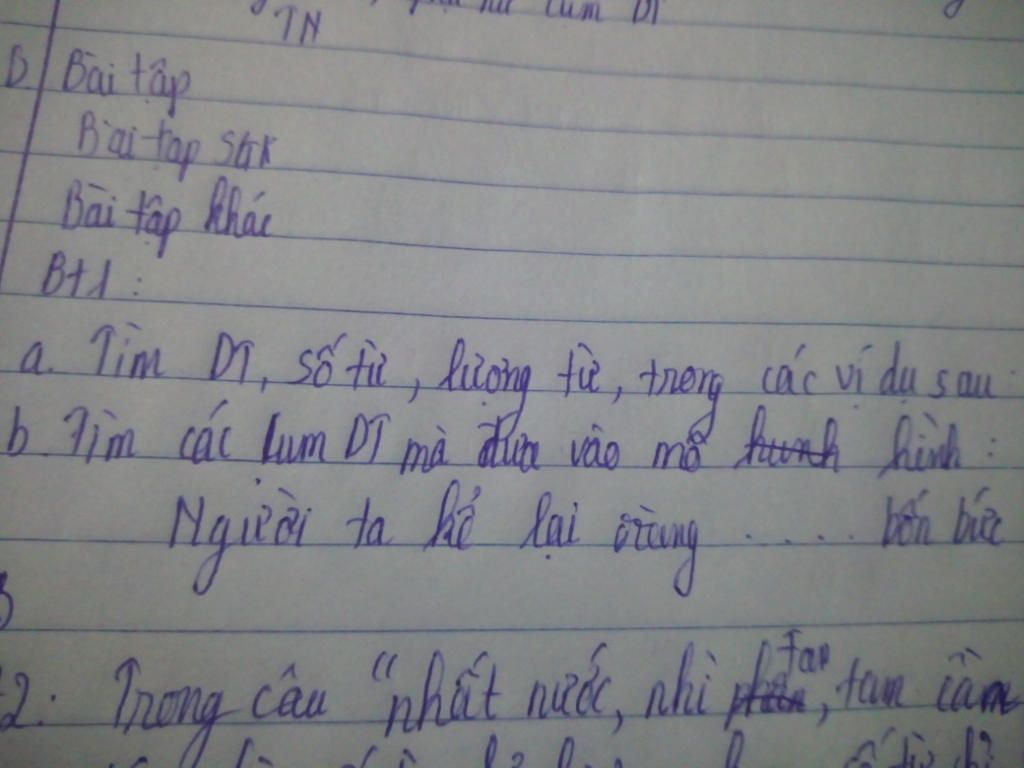 cụm DT
TN
D Bài tập
Bài tập SGK
Bài tập khác
BT1 :
a. Tìm DT, số từ, lượng từ, trong các ví dụ sau:
b. Tìm các cụm DT mà đưa vào mô hình :
Người ta kể lại rằng ..... bốn bức
2. Trong câu "nhất nước, nhì